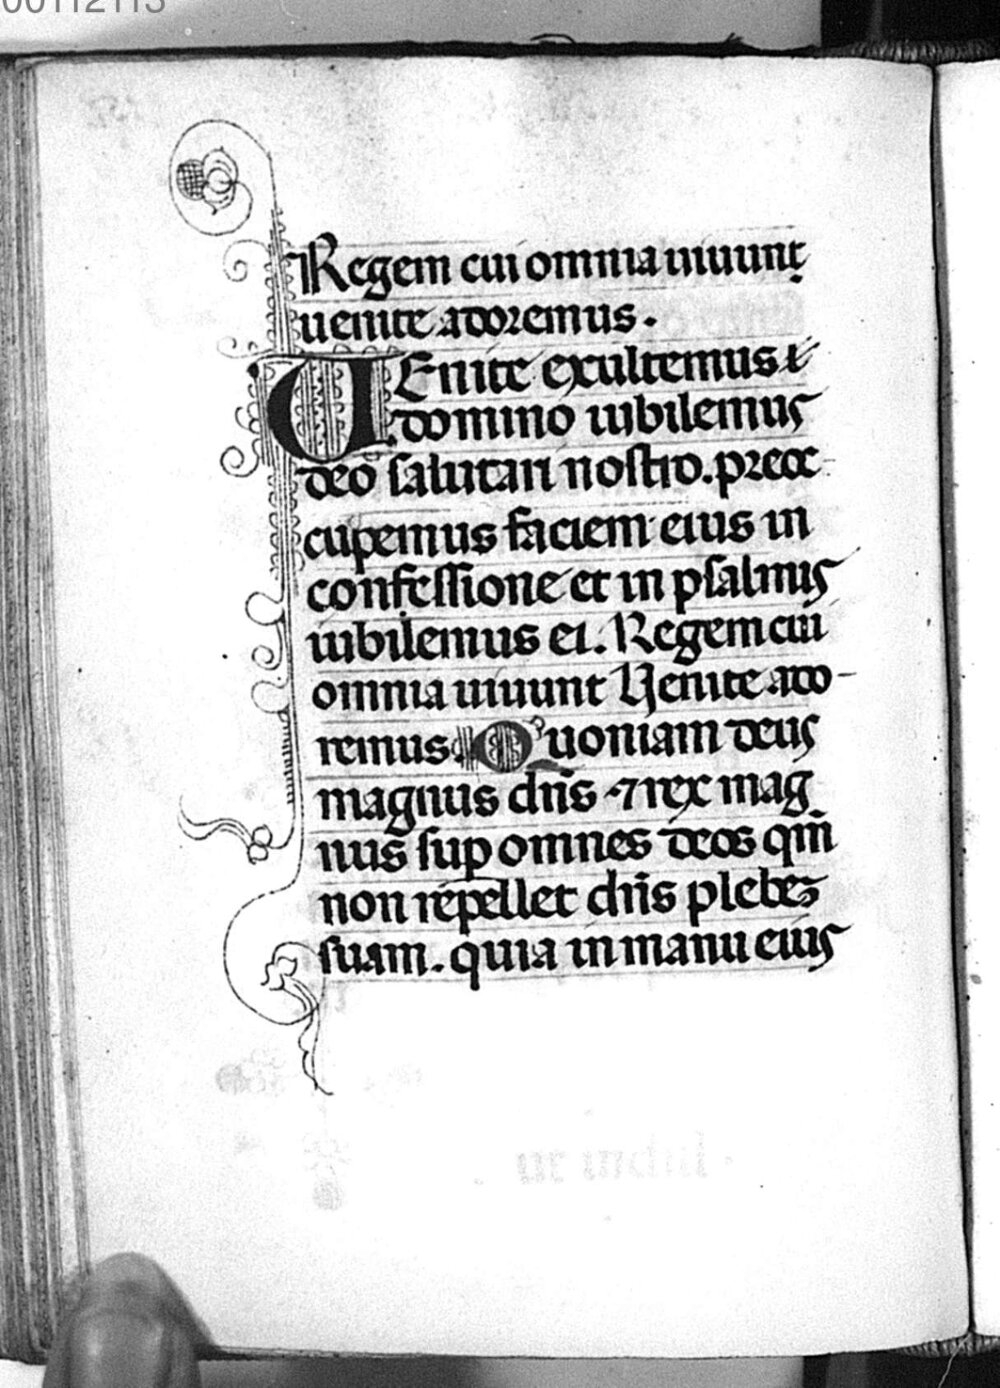 00112113
Regem cui omnia uiuunt
uenite adoremus.
VEnite exultemus i
domino iubilemus
deo salutari nostro. preoc-
cupemus faciem eius in
confessione et in psalmis
iubilemus ei. Regem cui
omnia uiuunt Venite ado-
remus. Quoniam deus
magnus dn̄s ⁊ rex mag
nus sup omnes deos qm̄
non repellet dn̄s plebeꝫ
suam. quia in manu eius